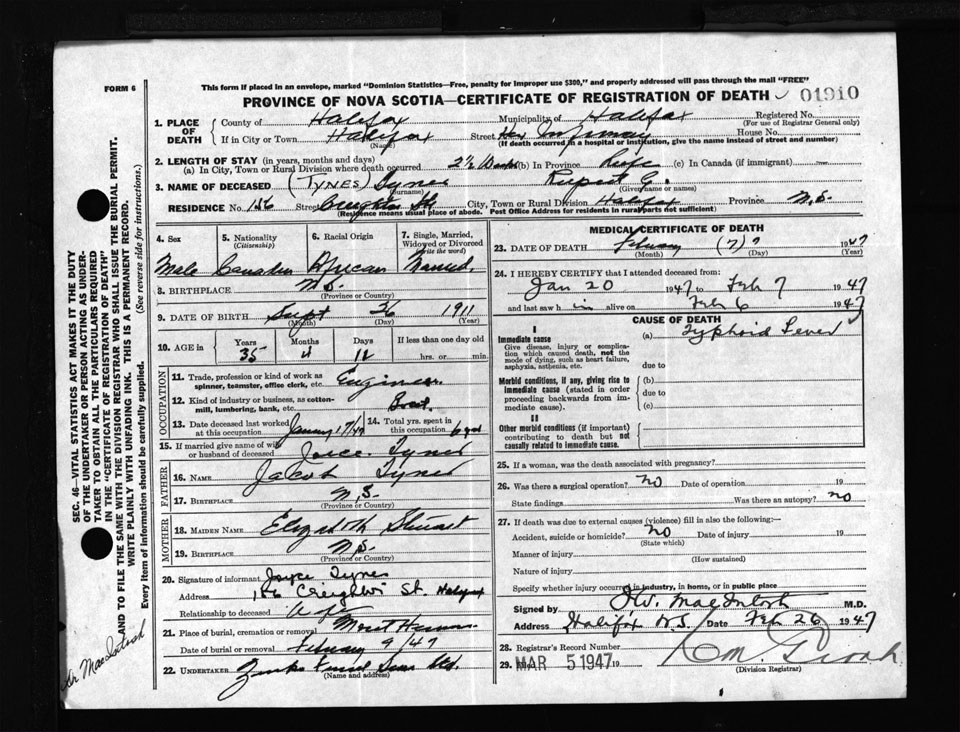 FORM 6
This form if placed in an envelope, marked "Dominion Statistics—Free, penalty for improper use $300," and properly addressed will pass through the mail "FREE"
PROVINCE OF NOVA SCOTIA—CERTIFICATE OF REGISTRATION OF DEATH 01910
1. PLACE OF DEATH
County of Halifax Municipality of Halifax Registered No.
(For use of Registrar General only)
If in City or Town Halifax Street Infirmary House No.
(Name) (If death occurred in a hospital or institution, give the name instead of street and number)
2. LENGTH OF STAY (in years, months and days)
(a) In City, Town or Rural Division where death occurred 2½ (b) In Province Life (c) In Canada (if immigrant)
3. NAME OF DECEASED (TYNES) Tynes Rupert G.
(Surname) (Given name or names)
RESIDENCE No. 156 Street Creighton St. City, Town or Rural Division Halifax Province N.S.
(Residence means usual place of abode. Post Office Address for residents in rural parts not sufficient)
4. Sex
Male
5. Nationality
(Citizenship)
Canadian
6. Racial Origin
African
7. Single, Married, Widowed or Divorced
(Write the word)
Married
8. BIRTHPLACE N.S.
(Province or Country)
9. DATE OF BIRTH Sept 26 1911
(Month) (Day) (Year)
10. AGE in Years Months Days If less than one day old
35 4 12 hrs. or min.
OCCUPATION
11. Trade, profession or kind of work as spinner, teamster, office clerk, etc. Engineer
12. Kind of industry or business, as cotton-mill, lumbering, bank, etc. Boat.
13. Date deceased last worked at this occupation January 17/47
14. Total yrs. spent in this occupation 6 yrs
15. If married give name of wife or husband of deceased Joyce Tynes
FATHER
16. NAME Jacob Tynes
17. BIRTHPLACE N.S.
(Province or Country)
MOTHER
18. MAIDEN NAME Elizabeth Stewart
19. BIRTHPLACE N.S.
(Province or Country)
20. Signature of informant Joyce Tynes
Address 156 Creighton St. Halifax
Relationship to deceased Wife
21. Place of burial, cremation or removal Mount
Date of burial or removal February 9/47
22. UNDERTAKER
(Name and address)
MEDICAL CERTIFICATE OF DEATH
23. DATE OF DEATH February (7) 7 1947
(Month) (Day) (Year)
24. I HEREBY CERTIFY that I attended deceased from:
Jan 20 1947 to Feb 7 1947
and last saw h im alive on Feb 6 1947
CAUSE OF DEATH
I
Immediate cause (a) Typhoid Fever
Give disease, injury or complication which caused death, not the mode of dying, such as heart failure, asphyxia, asthenia, etc.
due to
Morbid conditions, if any, giving rise to immediate cause (stated in order proceeding backwards from immediate cause).
(b)
due to
(c)
II
Other morbid conditions (if important) contributing to death but not causally related to immediate cause.
25. If a woman, was the death associated with pregnancy?
26. Was there a surgical operation? no Date of operation 19
State findings Was there an autopsy? no
27. If death was due to external causes (violence) fill in also the following:—
Accident, suicide or homicide? no Date of injury 19
(State which)
Manner of injury
(How sustained)
Nature of injury
Specify whether injury occurred in industry, in home, or in public place
Signed by W. MacIntosh M.D.
Address Halifax N.S. Date Feb 26 1947
28. Registrar's Record Number
29. MAR 5 1947 19
(Division Registrar)
SEC. 46—VITAL STATISTICS ACT MAKES IT THE DUTY
OF THE UNDERTAKER OR PERSON ACTING AS UNDER-
TAKER TO OBTAIN ALL THE PARTICULARS REQUIRED
IN THE "CERTIFICATE OF REGISTRATION OF DEATH"
AND TO FILE THE SAME WITH THE DIVISION REGISTRAR WHO SHALL ISSUE THE BURIAL PERMIT.
WRITE PLAINLY WITH UNFADING INK. THIS IS A PERMANENT RECORD.
Every item of information should be carefully supplied. (See reverse side for instructions.)
Dr MacIntosh